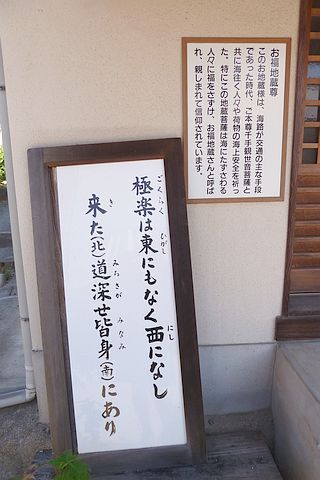 お福地蔵尊
このお地蔵様は、海路が交通の主な手段
であった時代、ご本尊千手観世音菩薩と
共に海往く人々や荷物の海上安全を祈っ
た。特にこの地蔵菩薩は海にたずさわる
人々に福をさずけ、お福地蔵さんと呼ば
れ、親しまれて信仰されています。
ごくらく ひがし にし
極楽は東にもなく西になし
き みちさがみなみ
来た(北)道深せ皆身(南)にあり